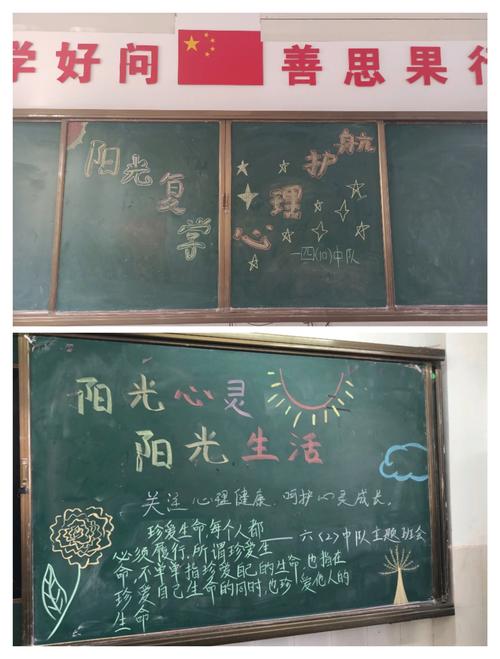 学好问 善思果行
阳光复学
心理护航
一四(10)中队
阳光心灵
阳光生活
关注心理健康，呵护心灵成长。
——六(2)中队主题班会
珍爱生命，每个人都
必须履行，所谓珍爱生
命，不单单指珍爱自己的生命，也指在
珍爱自己生命的同时，也珍爱他人的
生命